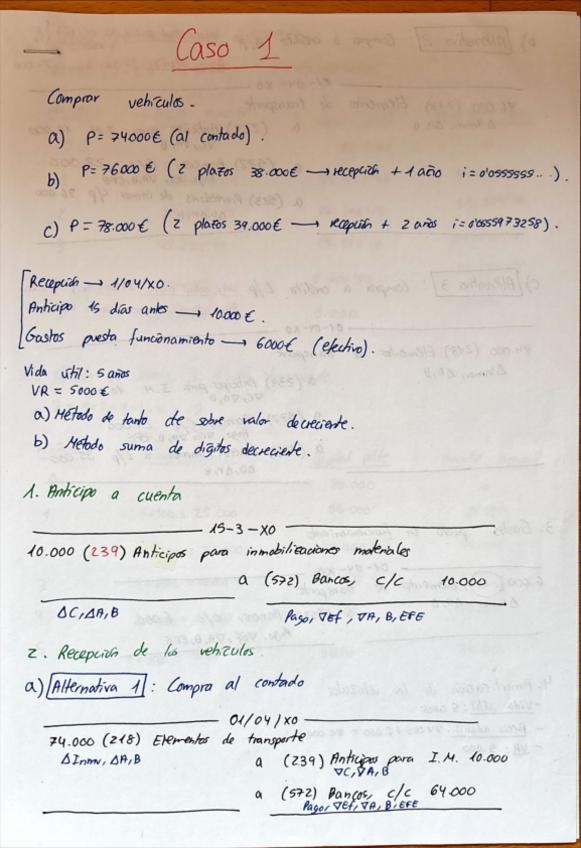 Caso 1
Comprar vehículos.
a) P= 74000€ (al contado).
b) P= 76000€ (2 plazos 38.000€ → recepción + 1 año i=0'0555555...).
c) P= 78.000€ (2 plazos 39.000€ → recepción + 2 años i=0'0655973258).
Recepción → 1/04/X0.
Anticipo 15 días antes → 10000€.
Gastos puesta funcionamiento → 6000€ (efectivo).
Vida útil: 5 años
VR = 5000€
a) Método de tanto cte sobre valor decreciente.
b) Método suma de dígitos decreciente.
1. Anticipo a cuenta
15-3-X0
10.000 (239) Anticipos para inmobilizaciones materiales
a (572) Bancos, c/c 10.000
ΔC, ΔA, B
Pago, ∇Ef, ∇A, B, EFE
2. Recepción de los vehículos.
a) Alternativa 1: Compra al contado
01/04/X0
74.000 (218) Elementos de transporte
ΔInmv, ΔA, B
a (239) Anticipos para I.M. 10.000
∇C, ∇A, B
a (572) Bancos, c/c 64.000
Pago, ∇Ef, ∇A, B, EFE